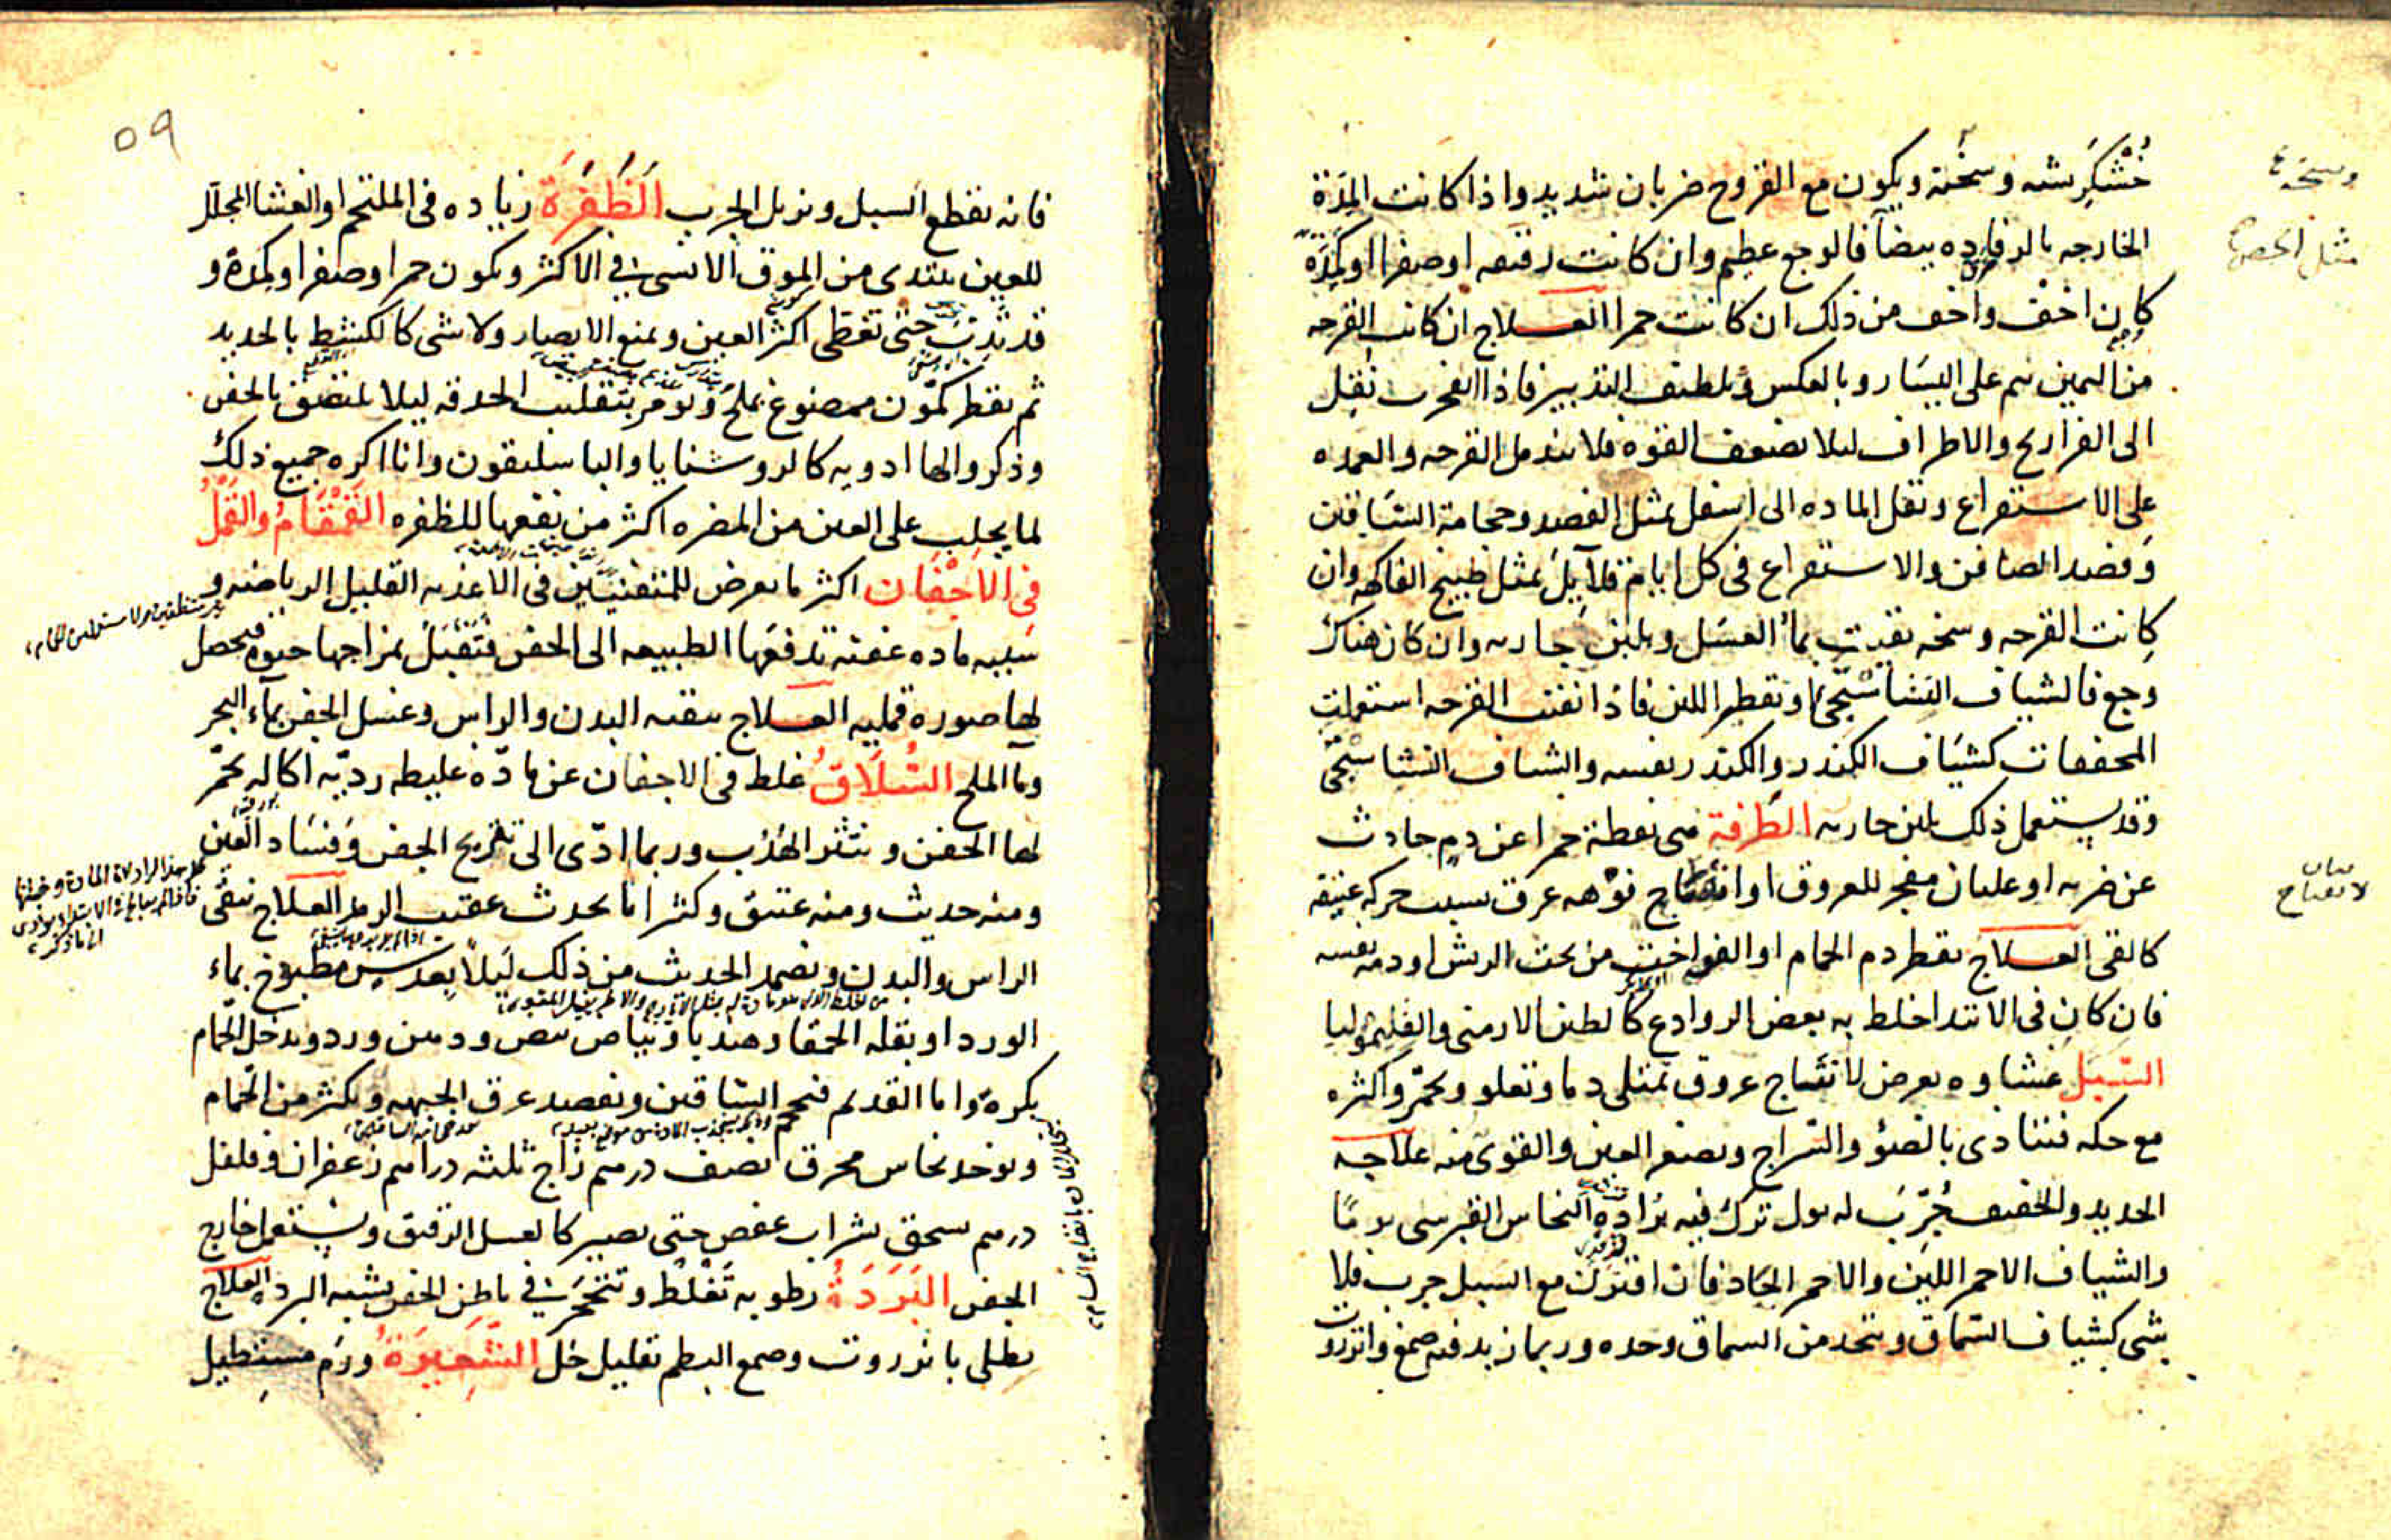 خُشْكَرِيشه وسخنة ويكون مع القروح ضربان شديد واذا كانت المِدّة
الخارجه بالرفاده بيضآ فالوجع عظيم وان كانت رقيقه او صفرا او كَمِدة
كان اخف واخف من ذلك ان كانت حمرا العلاج ان كانت القرحه
من اليمين نيم على اليسار وبالعكس ويلطف التدبير فاذا انفجرت نُقِل
الى الفراريج والاطراف ليلا تضعف القوة فلا تندمل القرحه والعمده
على الاستفراغ ونقل الماده الى اسفل بمثل الفصد وحجامة الساقين
وفصد الصافن والاستفراغ فى كل ايام قلايل بمثل طبيخ الفاكهه وان
كانت القرحه وسخه نقيت بمآ العسل وبلبن جاريه وان كان هناك
وجع فالشياف النشاستجى او تقطير اللبن فاذا نقت القرحه استعملت
المجففات كشياف الكندر والكندر نفسه والشياف النشاستجى
وقد يستعمل ذلك بلبن جاريه الطرفة هى نقطة حمرا عن دم حادث
عن ضربه او غليان مفجر للعروق او انفتاح فوهه عرق بسبب حركه عنيفه
كالقى العلاج يقطر دم الحمام او الفواخت من تحت الريش او دمه نفسه
فان كان فى الابتدا خلط به بعض الروادع كالطين الارمنى والقليموليا
السَبَل غشاوه يعرض لانتساج عروق تمتلى دما وتعلو وتحمر واكثره
مع حكه فيتاذى بالضوء والسراج ويصغر العين والقوى منه علاجه
الحديد والخفيف جُرِّب له بول ترك فيه بُرادة النحاس القبرسى يوما
والشياف الاحمر اللين والاحمر الحاد فان اقترن مع السبل جرب فلا
شى كشياف السماق ويتخد من السماق وحده وربما زيد فيه صمغ وانزروت
وسخة
مثل الحصرم
٥٩
فانه يقطع السبل ويزيل الجرب الظَفَرَة زياده فى الملتحم او الغشا المجلل
للعين يبتدى من الموق الانسى فى الاكثر ويكون حمرا وصفرا وكمدة و
قد تثبت حتى تغطى اكثر العين ويمنع الابصار ولا شى كالكشط بالحديد
ثم يقطر كمّون ممضوغ بملح ويومر بتقليب الحدقه ليلا يلتصق بالجفن
وذكروا لها ادويه كالروشنايا والباسليقون وانا اكره جميع ذلك
لما يجلب على العين من المضره اكثر من نفعها للظفره القَمْقَامُ والقَمْلُ
فى الاجْفَان اكثر ما يعرض للمتفننين فى الاغذيه القليل الرياضه و
سببه ماده عفنه تدفعها الطبيعه الى الجفن فتقبل بمزاجها حيوة فيحصل
لها صوره قمليه العلاج تنقيه البدن والراس وغسل الجفن بمآء البحر
ومآ الملح السُلَاق غلظ فى الاجفان عن مادّه غليظه رديّه اكاله تحمّر
لها الجفن وينتثر الهُدب وربما ادّى الى تقريح الجفن وفساد العين
ومنه حديث ومنه عتيق وكثيرا ما يحدث عقيب الرمد العلاج ينقى
الراس والبدن ويضمد الحديث من ذلك ليلاً بعدس مطبوخ بماء
الورد او بقله الحمقا وهندبا وبياض بيض ودهن ورد ويدخل الحمّام
بكره واما القديم فتحجم الساقين ويفصد عرق الجبهه ويكثر من الحمّام
ويوخد نحاس محرق نصف درهم زاج ثلثه دراهم زعفران وفلفل
درهم يسحق بشراب عفص حتى يصير كالعسل الرقيق ويستعمل خارج
الجفن البَرَدَةُ رطوبه تَغْلُظ وتتحجر فى باطن الجفن يشبه البرد العلاج
يطلى بانزروت وصمع البطم بقليل خل الشَعِيرَةُ ورَم مستطيل